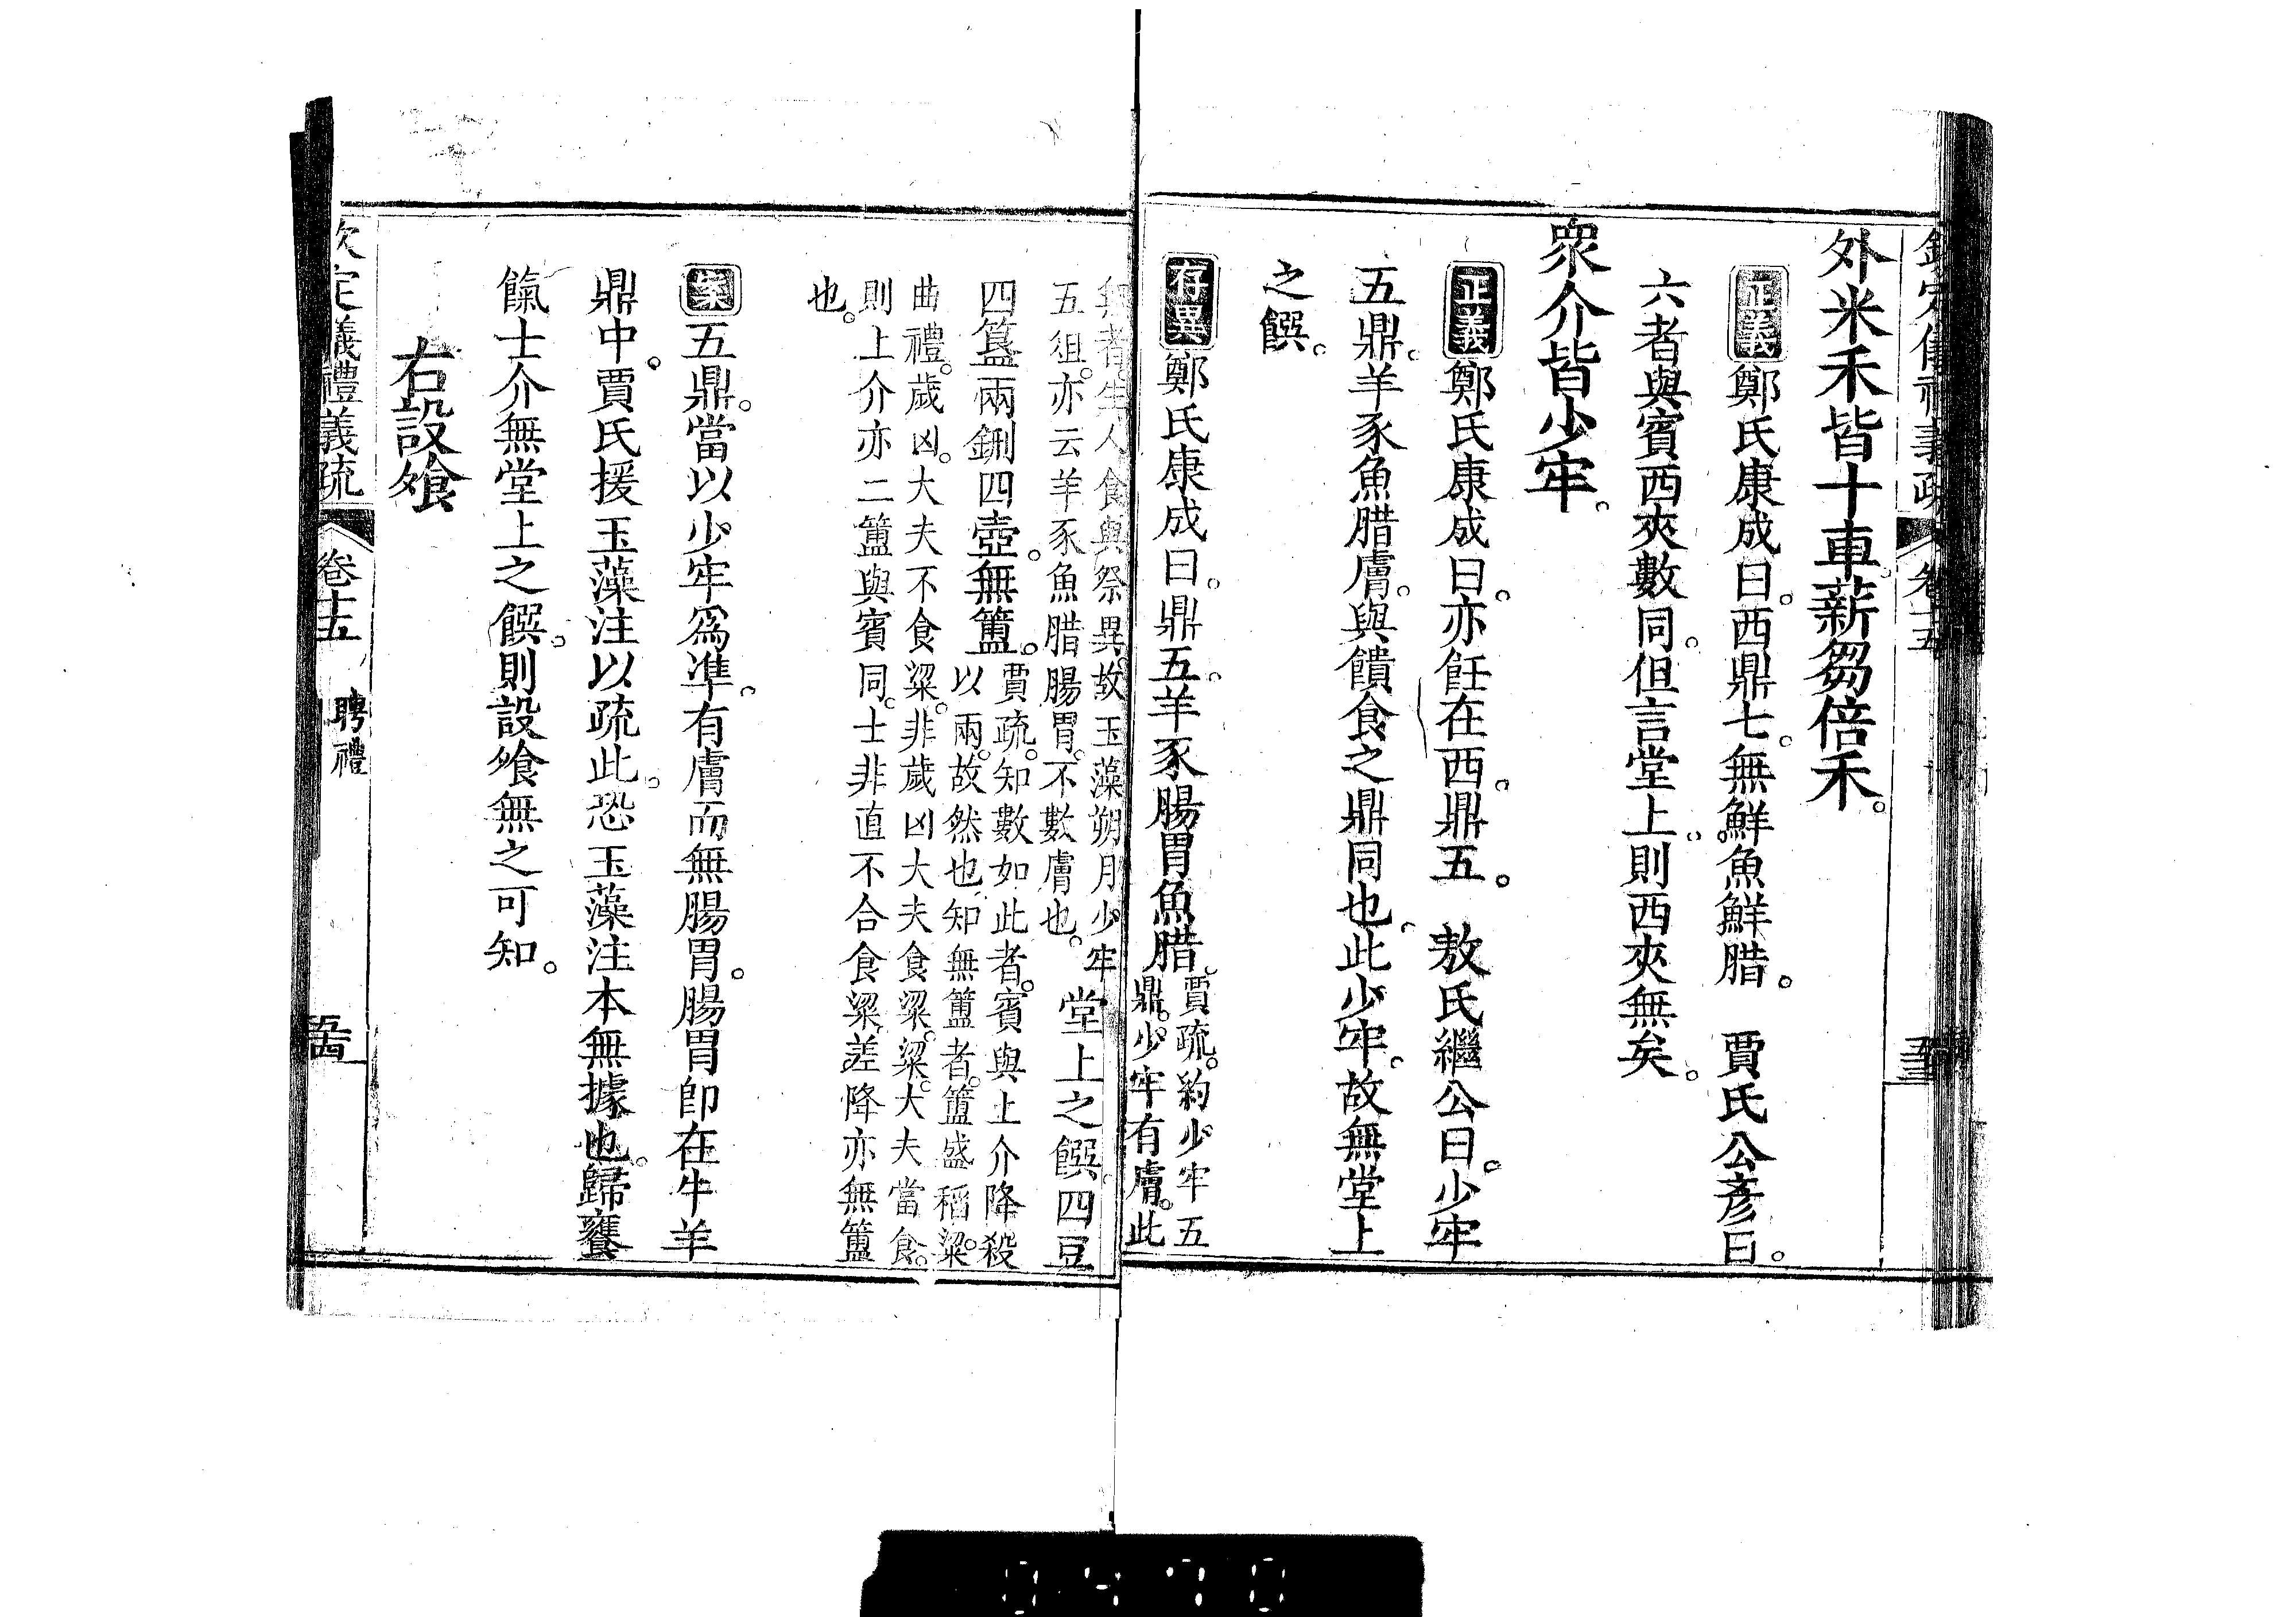 外米禾皆十車。薪芻倍禾。
正義鄭氏康成曰。西鼎七。無鮮魚鮮腊。 賈氏公彥曰。
六者與賓西夾數同。但言堂上。則西夾無矣。
衆介皆少牢。
正義鄭氏康成曰。亦飪在西。鼎五。 敖氏繼公曰。少牢
五鼎。羊豕魚腊膚。與饋食之鼎同也。此少牢。故無堂上
之饌。
存異鄭氏康成曰。鼎五。羊豕腸胃魚腊。
賈疏。約少牢五
鼎。少牢有膚。此
無者。生人食與祭異。故玉藻朔月少牢
五俎。亦云羊豕魚腊腸胃。不數膚也。
堂上之饌。四豆
四簋兩鉶四壺。無簠。
賈疏。知數如此者。賓與上介降殺
以兩。故然也。知無簠者。簠盛稻粱。
曲禮。歲凶。大夫不食粱。非歲凶大夫食粱。粱。大夫當食。
則上介亦二簠與賓同。士非直不合食粱。差降亦無簠
也。
案五鼎。當以少牢爲準。有膚而無腸胃。腸胃卽在牛羊
鼎中。賈氏援玉藻注以疏此。恐玉藻注本無據也。歸饔
餼士介無堂上之饌。則設飧無之可知。
右設飧
欽定儀禮義疏 卷十五 聘禮 五十四
0470